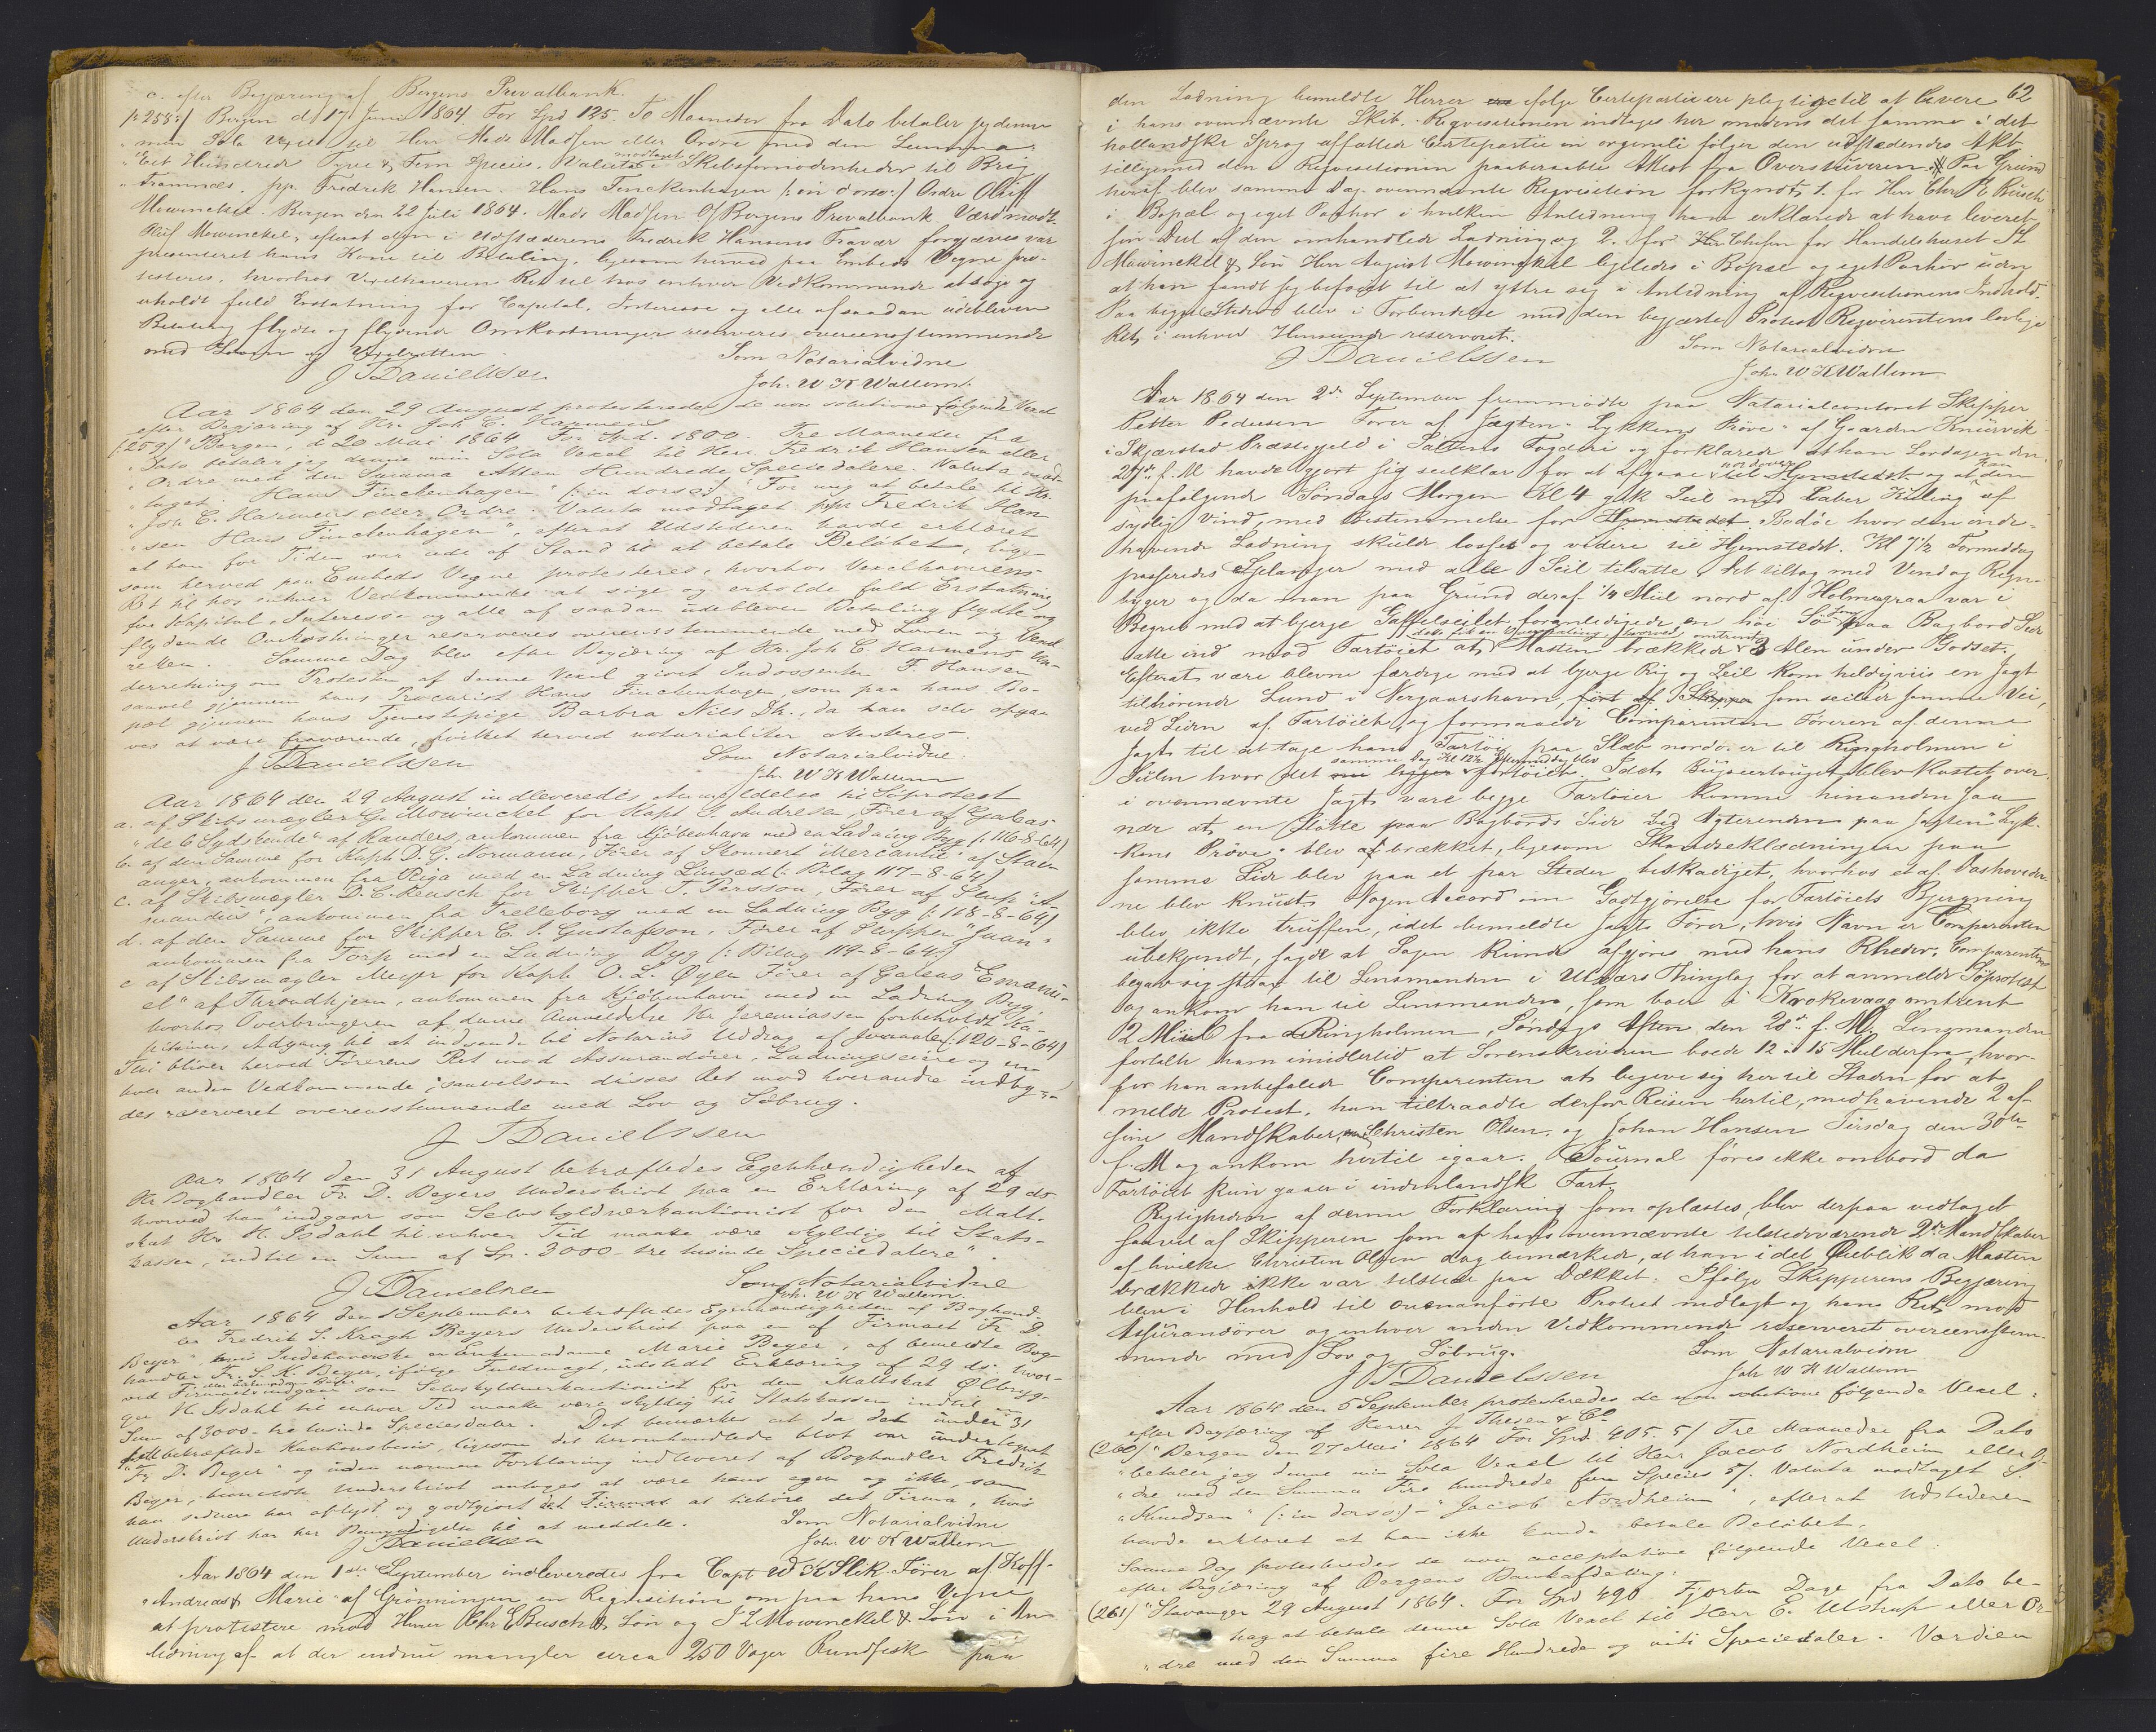 c. efter Begjæring af Bergens Privatbank.
1/258:/ Bergen d 17 Juni 1864. For Spd 125. To Maaneder fra Dato betaler jeg denne
"min Sola Vexel til Herr Mads Madsen eller Ordre med den Summa
"Eet Hundrede Tyve & Fem Species. Valuta modtaget i Skibsfornødenheder til Brig
"Framnæs. pp. Fredrik Hansen. Hans Finckenhagen /: in dorso:/ Ordre Oluff
Mowinckel. Bergen den 22 Juli 1864. Mads Madsen O/ Bergens Privatbank. Værd modt.
Oluf Mowinckel, efterat den i Udstæderens Fredrik Hansens Fravær forgjæves var
præsenteret hans Kone til Betaling, ligesom herved paa Embeds Vegne pro-
testeres, hvorhos Vexelhaverens Ret til hos enhver Vedkommende at søge og
erholde fuld Erstatning for Capital, Interesse og alle af saadan udebleven
Betaling flydte og flydende Omkostninger reserveres overeensstemmende
med Loven og Vexelretten.
Som Notarialvidne
J Danielssen
Joh. W K Wallem.
Aar 1864 den 29 August protesteredes de non solutione følgende Vexel
efter Begjæring af Hr. Joh C. Harmens
(259) "Bergen, d 20 Mai 1864 For Spd. 1800. Tre Maaneder fra
"Dato betaler jeg denne min Sola Vexel til Herr Fredrik Hansen eller
"Ordre med den Summa Atten Hundrede Speciedalere. Valuta mod-
"taget. Hans Finckenhagen" (: in dorso:) "For mig at betale til Hr.
"Joh C. Harmens eller Ordre. Valuta modtaget ppr Fredrik Han
"sen Hans Finckenhagen", efterat Udstederen havde erklæret
at han for Tiden var ude af Stand til at betale Beløbet, lige-
som herved paa Embeds Vegne protesteres, hvorhos Vexelhaverens
Ret til hos enhver Vedkommende at søge og erholde fuld Erstatning
for Kapital, Interesse og alle af saadan udebleven Betaling flydte og
flydende Omkostninger reserveres overensstemmende med Loven og Vexel
retten. Samme Dag blev efter Begjæring af Hr. Joh C. Harmens Un-
derretning om Protesten af denne Vexel givet Indossenten F. Hansen
saavel gjennem hans Procurist Hans Finckenhagen, som paa hans Bo-
pæl gjennem hans Tjenestepige Barbra Nils Dtr., da han selv opga-
ves at være fraværende, hvilket herved notarialiter attesteres.
J Danielssen
Som Notarialvidne.
Joh. W K Wallem
Aar 1864 den 29 August indleveredes Anmeldelse til Søprotest
a. af Skibsmægler G. Mowinckel for Kapt C. Andresen, Fører af Galeas
"de 6 Sydskende" af Randers, ankommen fra Kjøbenhavn med en Ladning Byg (: 116-8-64)
b. af den Samme for Kapt D. G. Normann, Fører af Skonnert "Mercantil" af Stav
anger, ankommen fra Riga med en Ladning Linsæd (: Bilag 117-8-64)
c. af Skibsmægler D. C. Reusch for Skipper T. Persson, Fører af Slup "A-
mandus", ankommen fra Trelleborg med en Ladning Byg (: 118-8-64)
d. af den Samme for Skipper C. P. Gustafson, Fører af Sluppen "Juan"
ankommen fra Torp med en Ladning Byg (: Bilag 119-8-64.)
e af Skibsmægler Meyer for Kapt. O. L. Øyen Fører af Galeas "Emanu-
el" af Throndhjem, ankommen fra Kjøbenhavn med en Ladning Byg,
hvorhos Overbringeren af denne Anmeldelse Hr Jeremiassen forbeholdt Ka-
pitainen Adgang til at indsende til Notarius Uddrag af Journalen (: 120-8-64)
Thi bliver herved Førerens Ret mod Assurandører, Ladningseiere og en-
hver anden Vedkommende, saavelsom disses Ret mod hverandre indby-
des reserveret overensstemmende med Lov og Søbrug.
J Danielssen
Aar 1864 den 31 August bekræftedes Egenhændigheden af
Hr Boghandler Fr. D. Beyers Underskrivt paa en Erklæring af 29 ds
hvorved han "indgaar som Selvskyldnerkautionist for den Malt-
skat Hr H. Isdahl til enhver Tid maatte være skyldig til Stats-
kassen, indtil en Sum af Sp. 3000- tre tusinde Speciedalere"
J Danielssen
Som Notarialvidne
Joh. W K Wallem.
Aar 1864 den 1 September bekræftedes Egenhændigheden af Boghand
ler Fredrik S. Kragh Beyers Underskrivt paa en af Firmaet "Fr. D.
Beyer", hvis Indehaverske er Enkemadame Marie Beyer, af bemeldte Bog-
handler Fr. S. K. Beyer, ifølge Fuldmagt, udstedt Erklæring af 29 ds. hvor-
ved Firmaet indgaar som Selvskyldnerkautionist for den Maltskat Ølbryg-
ger H. Isdahl til enhver Tid maatte være skyldig til Statskassen indtil en
Sum af 3000- tre tusinde Speciesdaler. Det bemærkes at da det under 31
bekræftede Kautionsbevis, ligesom det heromhandlede blot var undertegnet
"Fr D. Beyer" og uden nærmere Forklaring indleveret af Boghandler Fredrik
Beyer, bemeldte Underskrivt antoges at være hans egen og ikke, som
han sednere har oplyst og godtgjort at tilhøre det Firma, hvis
Underskrivt han har Bemyndigelse til at meddele.
Som Notarialvidne
J Danielssen
Joh. W K Wallem
Aar 1864 den 1ste September indleveredes fra Capt W K Slik. Fører af Koff-
"Andreas & Marie" af Grønningen en Reqvisition om paa hans Vegne
at protestere mod Herrer Chr. E Busch & Søn og J L Mowinckel & Søn i An-
ledning af at der endnu mangler circa 250 Voger Rundfisk paa
62
den Ladning bemeldte Herrer ifølge Certepartie ere pligtige til at levere
i hans ovennævnte Skib. Reqvisitionen indtages her medens det samme i det
hollandske Sprog affattede Certepartie en orginali følger den udstædendes Akt
tilligemed den i Reqvisitionen paaberaabte Attest fra Overstuveren. Paa Grund
heraf blev samme Dag ovennævnte Reqvisition forkyndt, 1. for Herr Chr. E Busch
i Bopæl og eget Paahør i hvilken Anledning han erklærede at have leveret
sin Deel af den omhandlede Ladning og 2. for Chefen for Handelshuset J L
Mowinckel & Søn Herr August Mowinckel ligeledes i Bopæl og eget Paahør uden
at han fandt sig beføiet til at yttre sig i Anledning af Reqvisitionens Indhold.
Paa begge Steder blev i Forbindelse med den begjærte Protest Reqvirentens lovlige
Ret, i enhver Henseende reserveret.
J Danielssen
Som Notarialvidne
Joh. W K Wallem
Aar 1864 den 2de September fremmødte paa Notarialcontoret Skipper
Petter Pedersen Fører af Jægten "Lykkens Prøve" af Gaarden Knurvik
i Skjærstad Præstegjeld i Saltens Fogderi og forklarede at han Lørdagen den
27de f. M havde gjort sig seilklar for at afgaae nordover og at han den
paafølgende Søndags Morgen Kl 4 gik Seil med laber Kuling af
sydlig Vind, med Bestemmelse for Hjemstedet Bodøe hvor den inde-
havende Ladning skulde losses og videre til Hjemstedet. Kl 7½ Formiddag
passeredes Hjelanger med alle Seil tilsatte, det tiltog med Vind og Regn-
byger og da man paa Grund deraf ¼ Miil nord af Holmengraa var i
Begreb med at bjerge Gaffelseilet, foranledigede en høi Sø som paa Bagbord Side
satte ind mod Fartøiet at Masten brækkede omtrent 3 Alen under Godset.
Efterat være blevne færdige med at bjerge Rig og Seil kom heldigviis en Jagt
tilhørende Lund i Nergaardshavn, som seilede samme Vei,
ved Siden af Fartøiet, og formaaede Comparenten Føreren af denne
Jagt til at tage hans Fartøi paa Slæb nordover til Ringholmen i
Sulen hvor det samme Dag Kl 12½ Eftermiddag blev fortøiet. Idet Bugseertouget blev kastet over
i ovennævnte Jagt vare begge Fartøier komne hinanden saa
nær at en Støtte paa Bagbords Side ved Agterenden paa Jagten "Lyk-
kens Prøve" blev afbrækket, ligesom Skandseklædningen paa
samme Side blev paa et par Steder beskadiget, hvorhos et af Vashovedne-
ne blev knust. Nogen Accord om Godtgjørelse for Fartøiets Bjergning
blev ikke truffen, idet bemeldte Jagts Fører, hvis Navn er Comparenten
ubekjendt, sagde at Sagen kunde afgjøres med hans Rheder. Comparenten
begav sig strax til Lensmanden i Utvær Thinglag for at anmelde Søprotest
og ankom han til Lensmanden, som boer i Krokevaag omtrent
2 Miil fra Ringholmen, Søndags Aften den 28de f. M. Lensmanden
fortalte ham imidlertid at Sorenskriveren boede 12 à 15 Miil derfra, hvor-
for han anbefalede Comparenten at begive sig her til Staden for at
melde Protest, han tiltraadte derfor Reisen hertil, medhavende 2 af
sine Mandskaber, Christen Olsen, og Johan Hansen Tirsdag den 30te
f. M og ankom hertil igaar. Journal føres ikke ombord da
Fartøiet kun gaaer i indenlandsk Fart.
Rigtigheden af denne Forklaring som oplæstes, blev derpaa vedtaget
saavel af Skipperen som af hans ovennævnte tilstedeværende 2de Mandskaber
af hvilke Christen Olsen dog bemærkede, at han i det Øieblik da Masten
brækkede ikke var tilstede paa Dækket. Ifølge Skipperens Begjæring
blev i Henhold til ovenanførte Protest nedlagt og hans Ret mod
Assurandører og enhver anden Vedkommende reserveret overeensstem-
mende med Lov og Søbrug.
Som Notarialvidne
J Danielssen
Joh W K Wallem
Aar 1864 den 5 September protesteredes de non solutione følgende Vexel:
efter Begjæring af Herrer J. Thesen & Co
(260) "Bergen den 27 Mai 1864 For Spd. 405. 5/ Tre Maaneder fra Dato
"betaler jeg denne min Sola Vexel til Herr Jacob Nordheim eller O-
"dre med den Summa Fire hundrede fem Species 5/. Valuta modtaget S.
"Knudsen" (: in dorso:) - "Jacob Nordheim", efterat Udstederen
havde erklæret at han ikke kunde betale Beløbet.
Samme Dag protesteredes de non acceptatione følgende Vexel:
efter Begjæring af Bergens Bankafdeling:
(261) "Stavanger 29 August 1864. For Spd 490 Fjorten Dage fra Dato be-
hag at betale denne Sola Vexel til Herr E. Ulstrup eller Or-
"dre med den Summa fire Hundrede og niti Speciedaler. Værdien